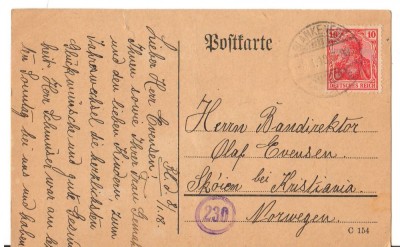 Postkarte
DEUTSCHES REICH
10
Herrn Bandirektor
Olaf Evensen
Skőien bei Kristiania
Norwegen.
230
C 154
Lieber Herr Evensen!
Ihnen sowie Ihrer Frau
und den lieben Kindern zum
Jahreswechsel die herzlichsten
Glückwünsche und gute
Herr war am
Sonntag bei uns und haben